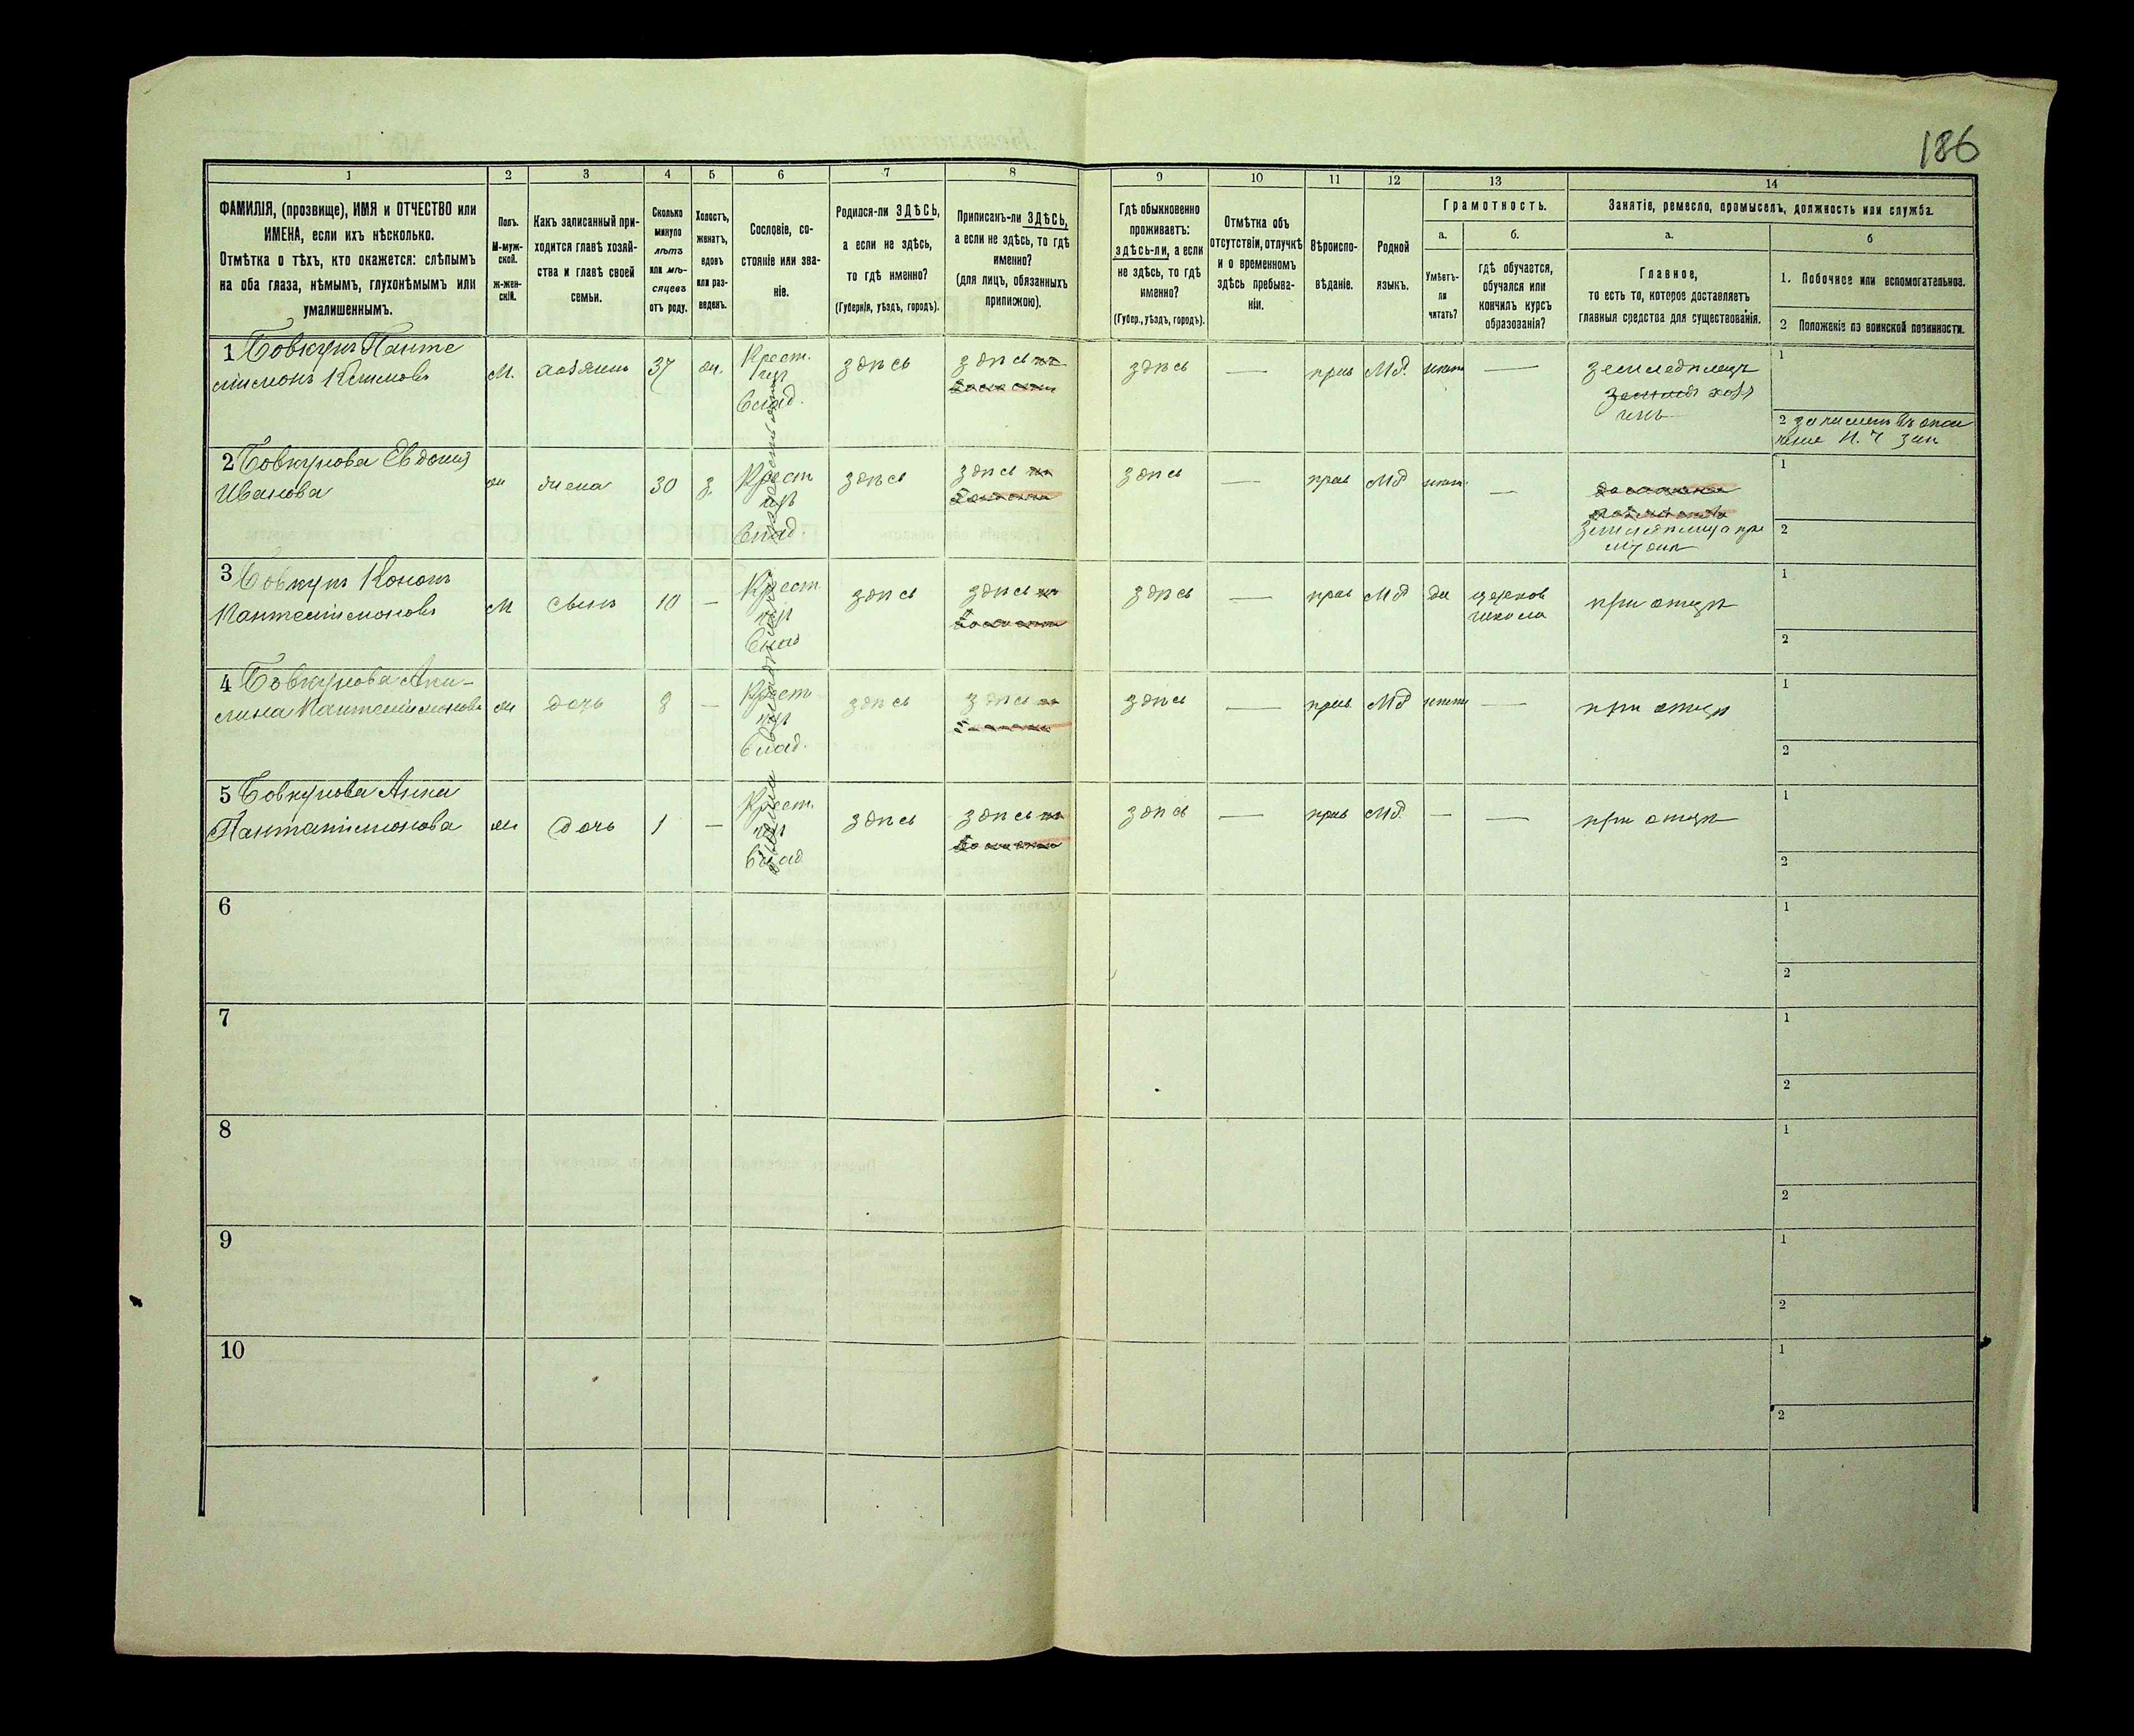 186
1
2
3
4
5
6
7
8
9
10
11
12
13
14
ФАМИЛІЯ, (прозвище), ИМЯ и ОТЧЕСТВО или
ИМЕНА, если ихъ нѣсколько.
Отмѣтка о тѣхъ, кто окажется: слѣпымъ
на оба глаза, нѣмымъ, глухонѣмымъ или
умалишеннымъ.
Полъ.
М-муж-
ской.
Ж-жен-
скій.
Какъ записанный при-
ходится главѣ хозяй-
ства и главѣ своей
семьи.
Сколько
минуло
лѣтъ
или мѣ-
сяцевъ
отъ роду.
Холостъ,
женатъ,
вдовъ
или раз-
веденъ.
Сословіе, со-
стояніе или зва-
ніе.
Родился-ли ЗДѢСЬ,
а если не здѣсь,
то гдѣ именно?
(Губернія, уѣздъ, городъ).
Приписанъ-ли ЗДѢСЬ,
а если не здѣсь, то гдѣ
именно?
(для лицъ, обязанныхъ
припискою).
Гдѣ обыкновенно
проживаетъ:
здѣсь-ли, а если
не здѣсь, то гдѣ
именно?
(Губер., уѣздъ, городъ).
Отмѣтка объ
отсутствіи, отлучкѣ
и о временномъ
здѣсь пребыва-
ніи.
Вѣроиспо-
вѣданіе.
Родной
языкъ.
Грамотность.
а.
б.
Умѣетъ-
ли
читать?
гдѣ обучается,
обучался или
кончилъ курсъ
образованія?
Занятіе, ремесло, промыселъ, должность или служба.
а.
б
Главное,
то есть то, которое доставляетъ
главныя средства для существованія.
1. Побочное или вспомогательное.
2 Положеніе по воинской повинности.
1 Бовкунъ Панте
леймонъ
М.
хозяинъ
37
жн.
Крест.
влад.
здѣсь
здѣсь
здѣсь
—
прав
Мл.
нѣтъ
—
земледѣлецъ
1
2
2 Бовкунова Евдокия
Иванова
ж
жена
30
з.
Крест
влад.
здѣсь
здѣсь
здѣсь
—
прав
Мл
нѣтъ
—
1
2
3 Бовкунъ Кононъ
Пантелеймоновъ
М
сынъ
10
—
Крест
влад
здѣсь
здѣсь
здѣсь
—
прав
Мл
да
церков
школа
при отцѣ
1
2
4 Бовкунова Аку-
лина Пантелеймонова
ж
дочь
8
—
Крест
влад.
здѣсь
здѣсь
здѣсь
—
прав
Мл
нѣтъ
—
при отцѣ
1
2
5 Бовкунова Анна
Пантелеймонова
ж
дочь
1
—
Крест.
влад
здѣсь
здѣсь
здѣсь
—
прав
Мл.
—
—
при отцѣ
1
2
6
1
2
7
1
2
8
1
2
9
1
2
10
1
2